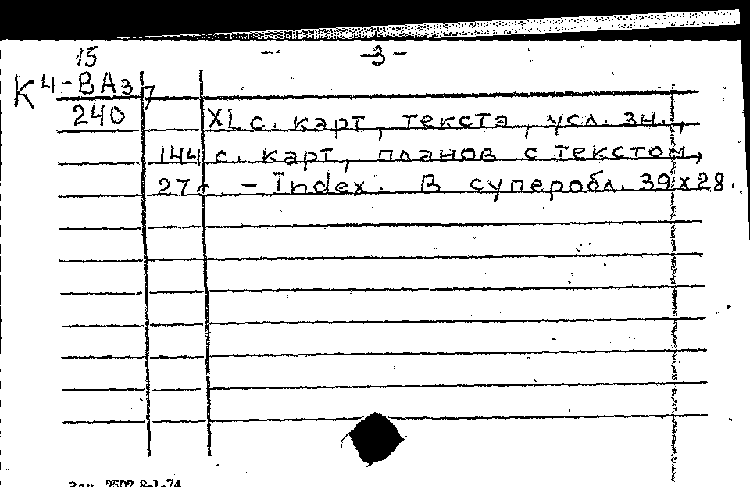 15
-3-
К4-ВАз7
240
XL с. карт, текста, усл. зн.,
144 с. карт, планов с текстом,
27 с - Index. В суперобл. 39x28.
Зак. 2502 8-1-74